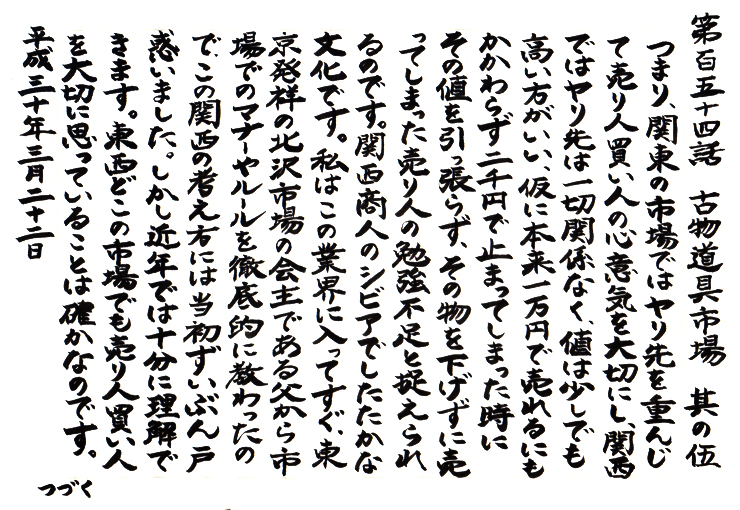 第百五十四話　古物道具市場　其の伍
つまり、関東の市場ではヤリ先を重んじ
て売り人買い人の心意気を大切にし、関西
ではヤリ先は一切関係なく、値は少しでも
高い方がいい、仮に本来一万円で売れるにも
かかわらず二千円で止まってしまった時に
その値を引っ張らず、その物を下げずに売
ってしまった売り人の勉強不足と捉えられ
るのです。関西商人のシビアでしたたかな
文化です。私はこの業界に入ってすぐ、東
京発祥の北沢市場の会主である父から市
場でのマナーやルールを徹底的に教わったの
で、この関西の考え方には当初ずいぶん戸
惑いました。しかし近年では十分に理解で
きます。東西どこの市場でも売り人買い人
を大切に思っていることは確かなのです。
平成三十年三月二十二日
つづく